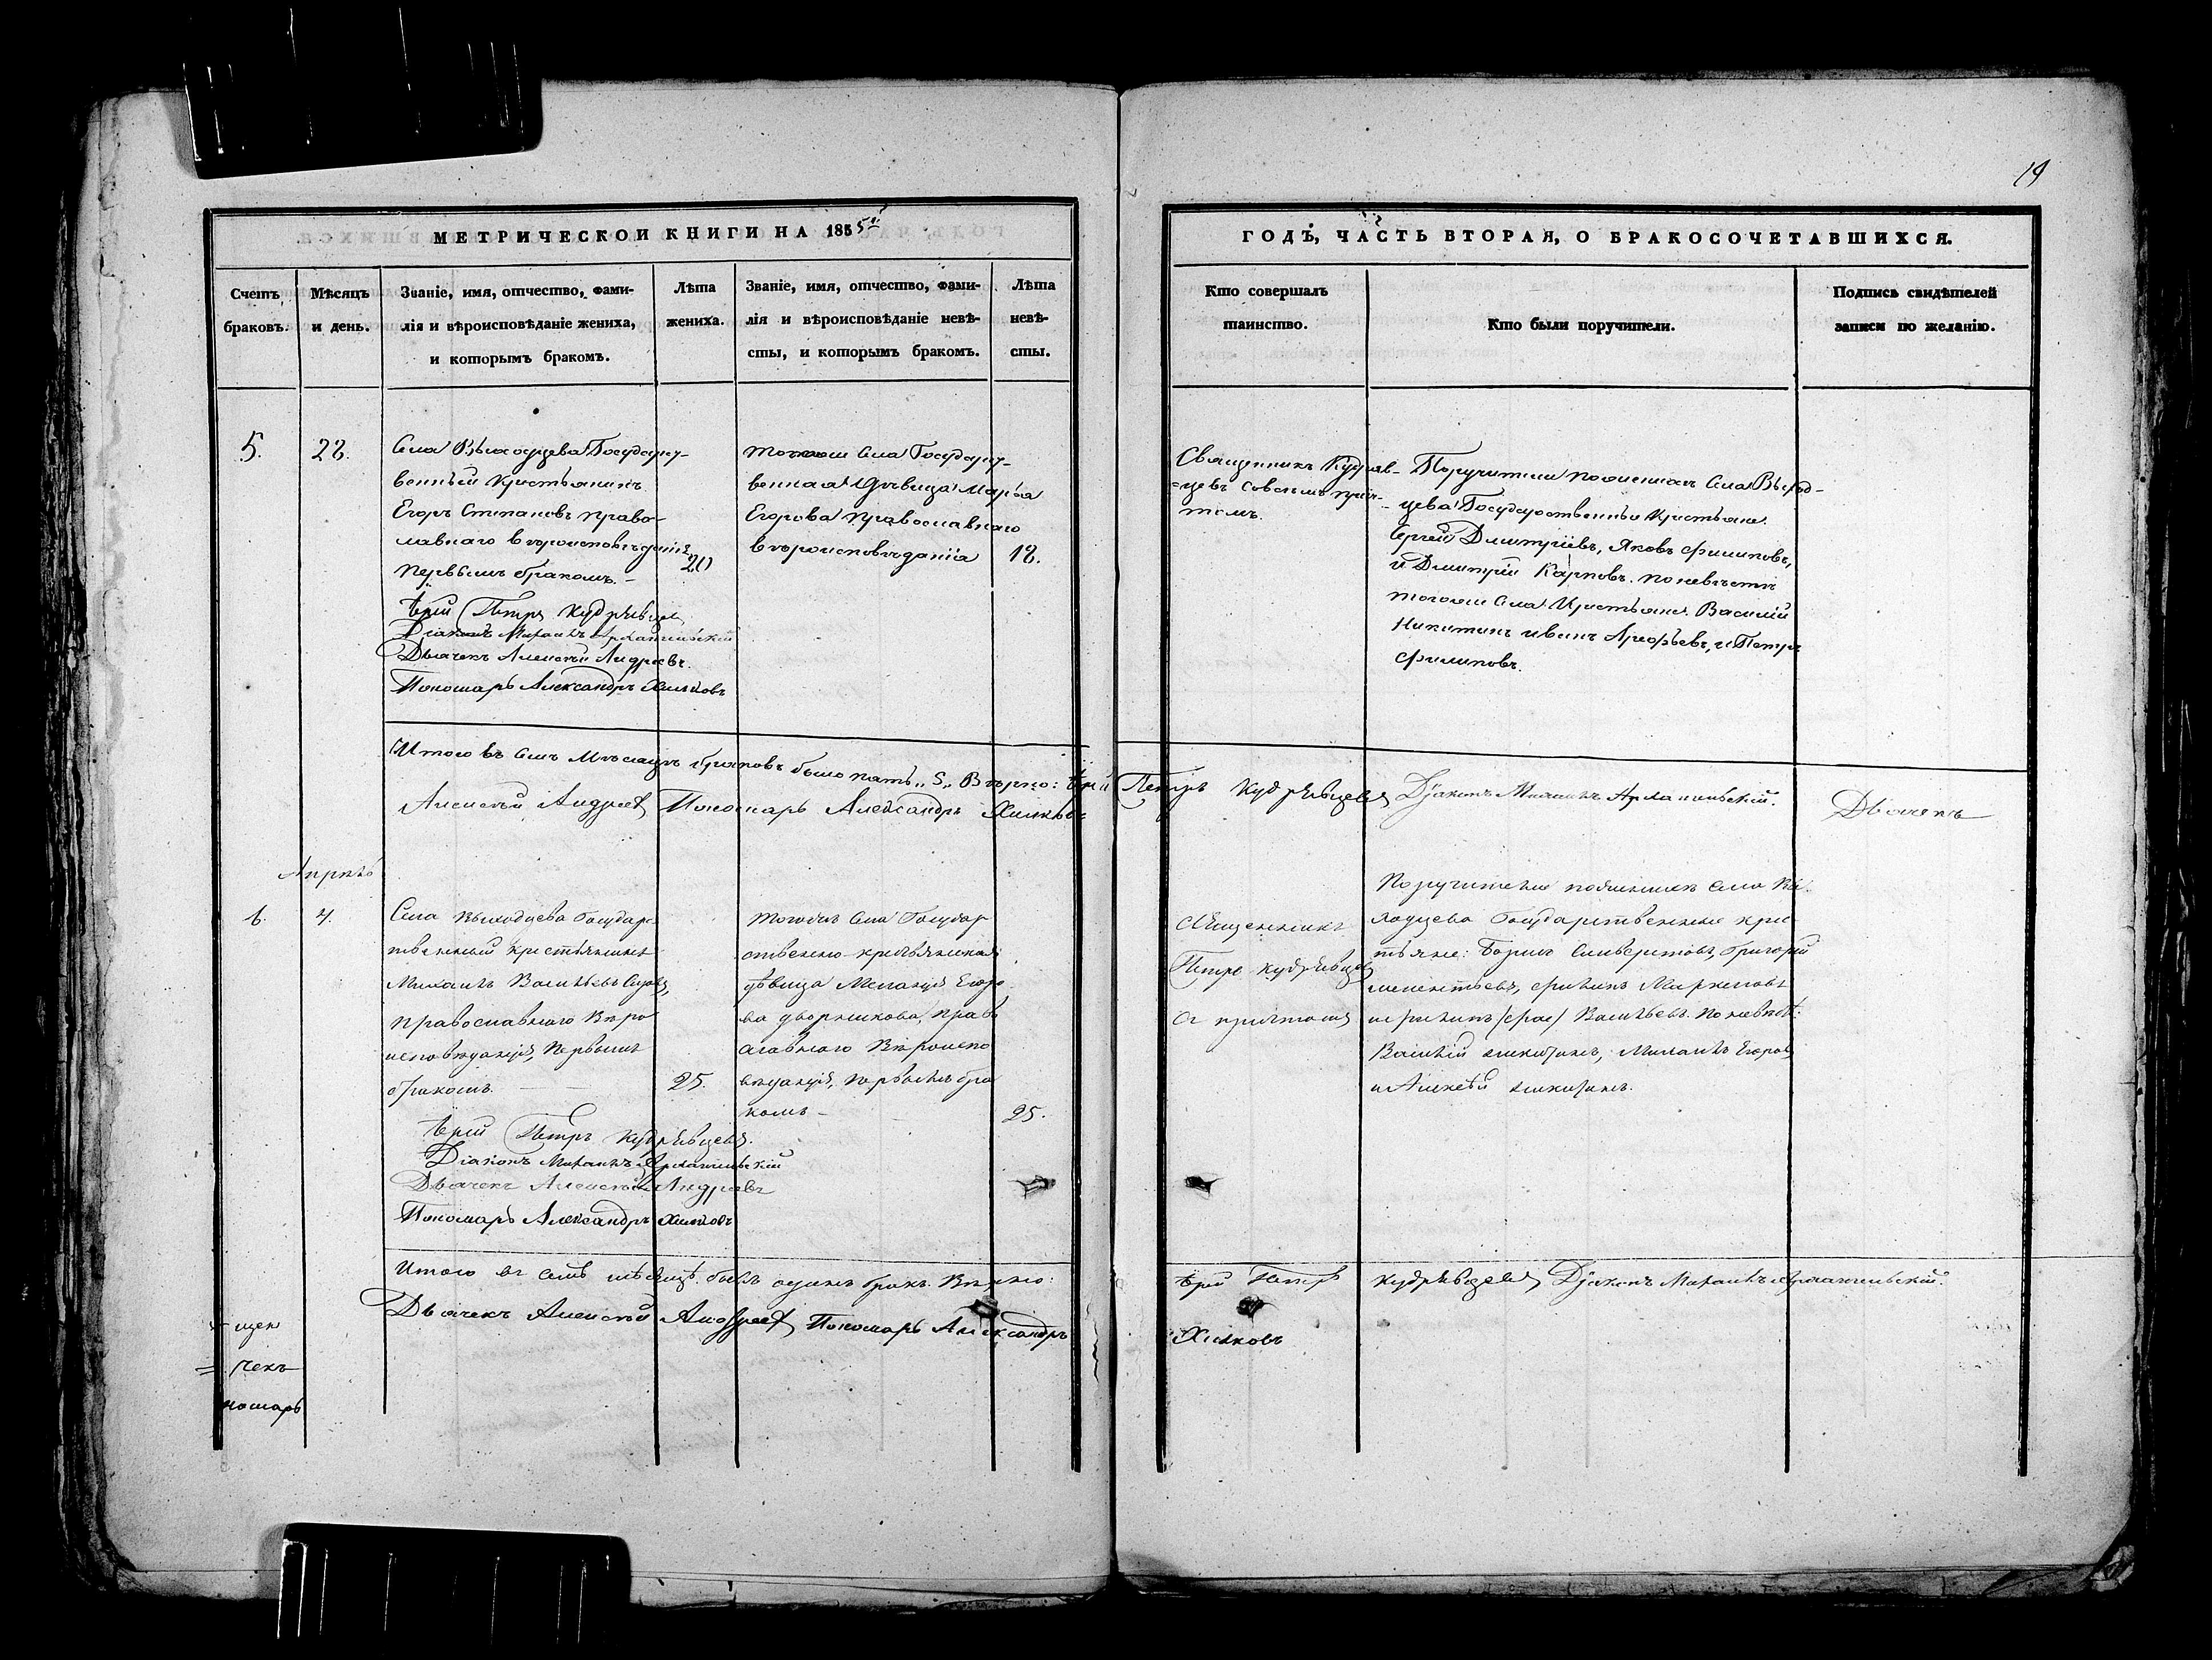 19
МЕТРИЧЕСКОЙ КНИГИ НА 1855й
ГОДЪ, ЧАСТЬ ВТОРАЯ, О БРАКОСОЧЕТАВШИХСЯ.
Счетъ
браковъ.
Мѣсяцъ
и день.
Званіе, имя, отчество, фами-
лія и вѣроисповѣданіе жениха,
и которымъ бракомъ.
Лѣта
жениха.
Званіе, имя, отчество, фами-
лія и вѣроисповѣданіе невѣ-
сты, и которымъ бракомъ.
Лѣта
невѣ-
сты.
Кто совершалъ
таинство.
Кто были поручители.
Подпись свидѣтелей
записи по желанію.
5.
22.
Села Государст-
венный Крестьянинъ
Егоръ Степановъ право-
славнаго вѣроисповѣданія
первымъ бракомъ. –
20
Іерей Петръ Кудрявцевъ
Діаконъ Михаилъ Архангельскій
Дьячекъ Алексѣй Андреевъ.
Пономарь Александръ Хилковъ
тогоже Села Государст-
венная Дѣвица Марья
Егорова православнаго
вѣроисповѣданія
18.
Священникъ Кудряв-
цевъ совсѣмъ прич-
томъ.
Поручители по женихѣ Села Выход-
цева Государственные Крестьяне
Сергей Дмитріевъ, Яковъ Филиповъ,
и Дмитрій Карповъ. по невѣстѣ
тогоже Села Крестьяне Василій
Никитинъ Иванъ Арефьевъ, и Петръ
Филиповъ.
Итого въ семъ Мѣсяцѣ браковъ было пять „5„ Вѣрно: Іерей Петръ Кудрявцевъ Діаконъ Михаилъ Архангельскій. Дьячекъ
Алексѣй Андреевъ Пономарь Александръ Хилковъ
Апрѣль
6.
Села Выходцева Государс
твенный крестьянинъ
Михаилъ Васильевъ
православнаго Вѣро
исповѣданія, первымъ
бракомъ.
25.
Іерей Петръ Кудрявцевъ.
Діаконъ Михаилъ Архангельскій
Дьячекъ Алексѣй Андреевъ
Пономарь Александръ Хилковъ
тогожъ Села Государ
ственно-крестьянская
дѣвица Меланія Егоро
ва Дворникова, Право
славнаго Вѣроиспо
вѣданія, первымъ бра
комъ –
25.
Священникъ
Петръ Кудрявцевъ
съ причтомъ
Поручители по женихѣ села Вы
ходцева Государственные крес
тьяне: Борисъ Григорій
Филипъ
Васильевъ. По невѣстѣ:
Василій Никитинъ, Михаилъ Егоровъ
и Алексѣй Никитинъ.
Итого въ семъ мѣсяцѣ былъ одинъ бракъ. Вѣрно: Іерей Петръ Кудрявцевъ Діаконъ Михаилъ Архангельскій.
Дьячекъ Алексѣй Андреевъ Пономарь Александръ Хилковъ
щен
чекъ
номарь